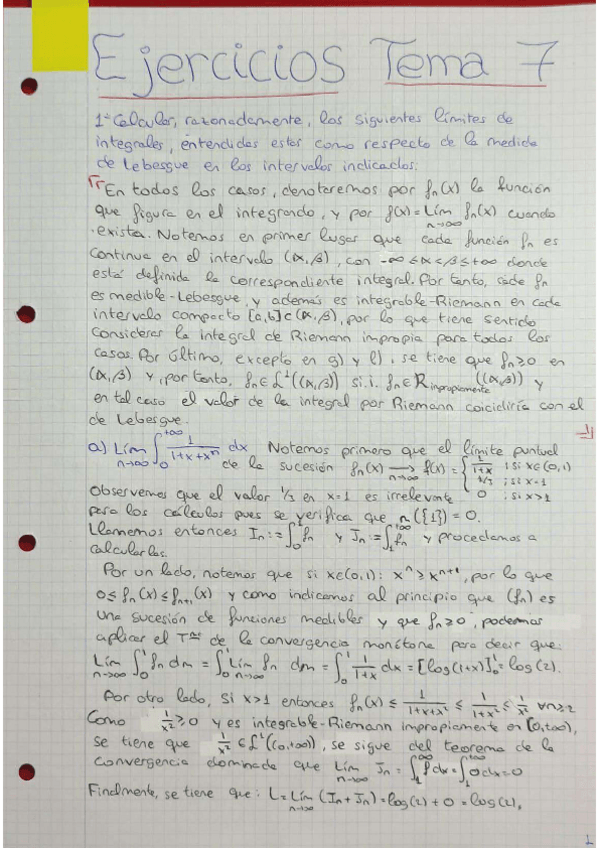 Ejercicios Tema 7
1º Calcular, razonadamente, los siguientes límites de
integrales, entendidas estas como respecto de la medida
de Lebesgue en los intervalos indicados:
En todos los casos, denotaremos por fₙ(x) la función
que figura en el integrando, y por f(x) = Lím_{n→∞} fₙ(x) cuando
exista. Notemos en primer lugar que cada función fₙ es
continua en el intervalo (α,β), con -∞≤α<β≤+∞ donde
está definida la correspondiente integral. Por tanto, cada fₙ
es medible-Lebesgue, y además es integrable-Riemann en cada
intervalo compacto [a,b]⊂(α,β), por lo que tiene sentido
considerar la integral de Riemann impropia para todos los
casos. Por último, excepto en g) y l), se tiene que fₙ≥0 en
(α,β) y, por tanto, fₙ∈L¹((α,β)) s.i. fₙ∈R_{impropiamente}((α,β)) y
en tal caso el valor de la integral por Riemann coicidiría con el
de Lebesgue.
a) Lím_{n→∞} ∫₀^{+∞} 1/(1+x+xⁿ) dx Notemos primero que el límite puntual
de la sucesión fₙ(x) → f(x) = { 1/(1+x) ; si x∈(0,1)
1/3 ; si x=1
0 ; si x>1
Observemos que el valor 1/3 en x=1 es irrelevante
para los cálculos pues se verifica que m({1})=0.
Llamemos entonces Iₙ := ∫₀¹ fₙ y Jₙ := ∫₁^{+∞} fₙ y procedamos a
calcularlas.
Por un lado, notemos que si x∈(0,1): xⁿ ≥ xⁿ⁺¹, por lo que
0≤fₙ(x)≤fₙ₊₁(x) y como indicamos al principio que (fₙ) es
una sucesión de funciones medibles y que fₙ≥0, podemos
aplicar el Tᵐᵃ de la convergencia monótona para decir que:
Lím_{n→∞} ∫₀¹ fₙ dm = ∫₀¹ Lím_{n→∞} fₙ dm = ∫₀¹ 1/(1+x) dx = [log(1+x)]₀¹ = log(2).
Por otro lado, si x>1 entonces fₙ(x) ≤ 1/(1+x+x²) ≤ 1/(1+x²) ≤ 1/x² ∀n≥2
Como 1/x² ≥0 y es integrable-Riemann impropiamente en [0,+∞),
se tiene que 1/x² ∈ L¹((0,+∞)), se sigue del teorema de la
convergencia dominada que Lím_{n→∞} Jₙ = ∫₁^{+∞} f dx = ∫₁^{+∞} 0 dx = 0
Finalmente, se tiene que: L = Lím_{n→∞} (Iₙ+Jₙ) = log(2) + 0 = log(2).
1